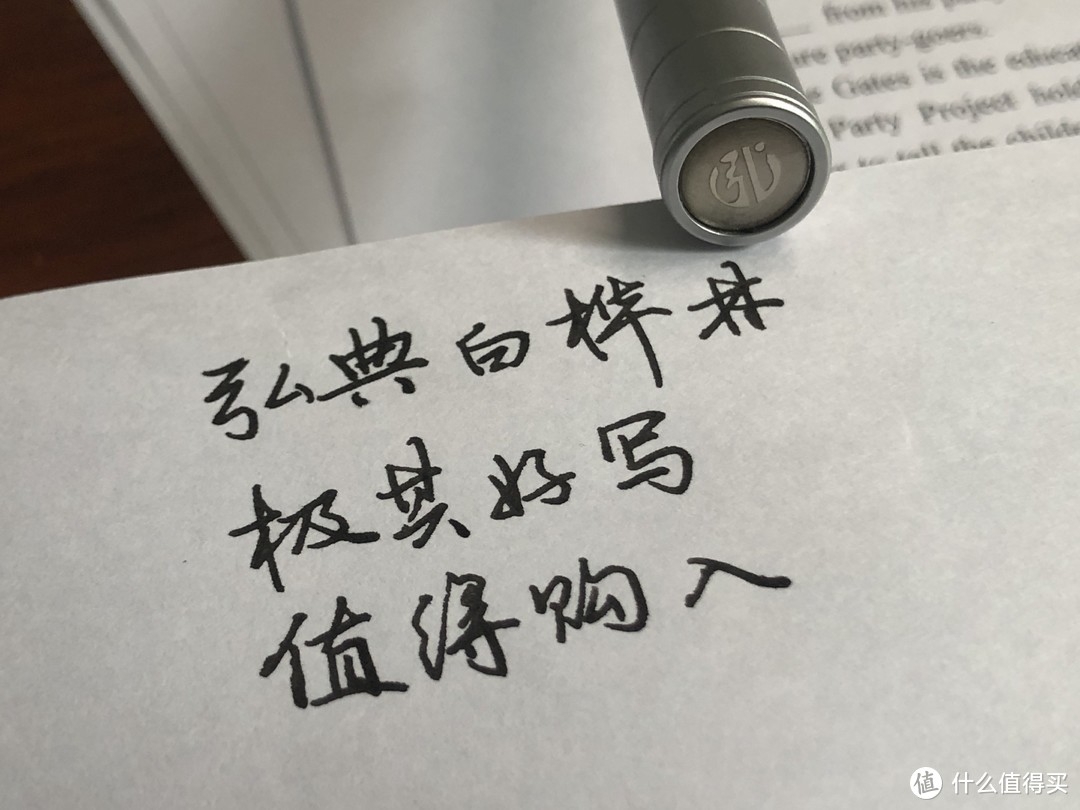 from his
are party-goers.
Gates is the educat
Party Project hold
to tell the childre
弘
弘典白桦林
极其好写
值得购入
值 什么值得买